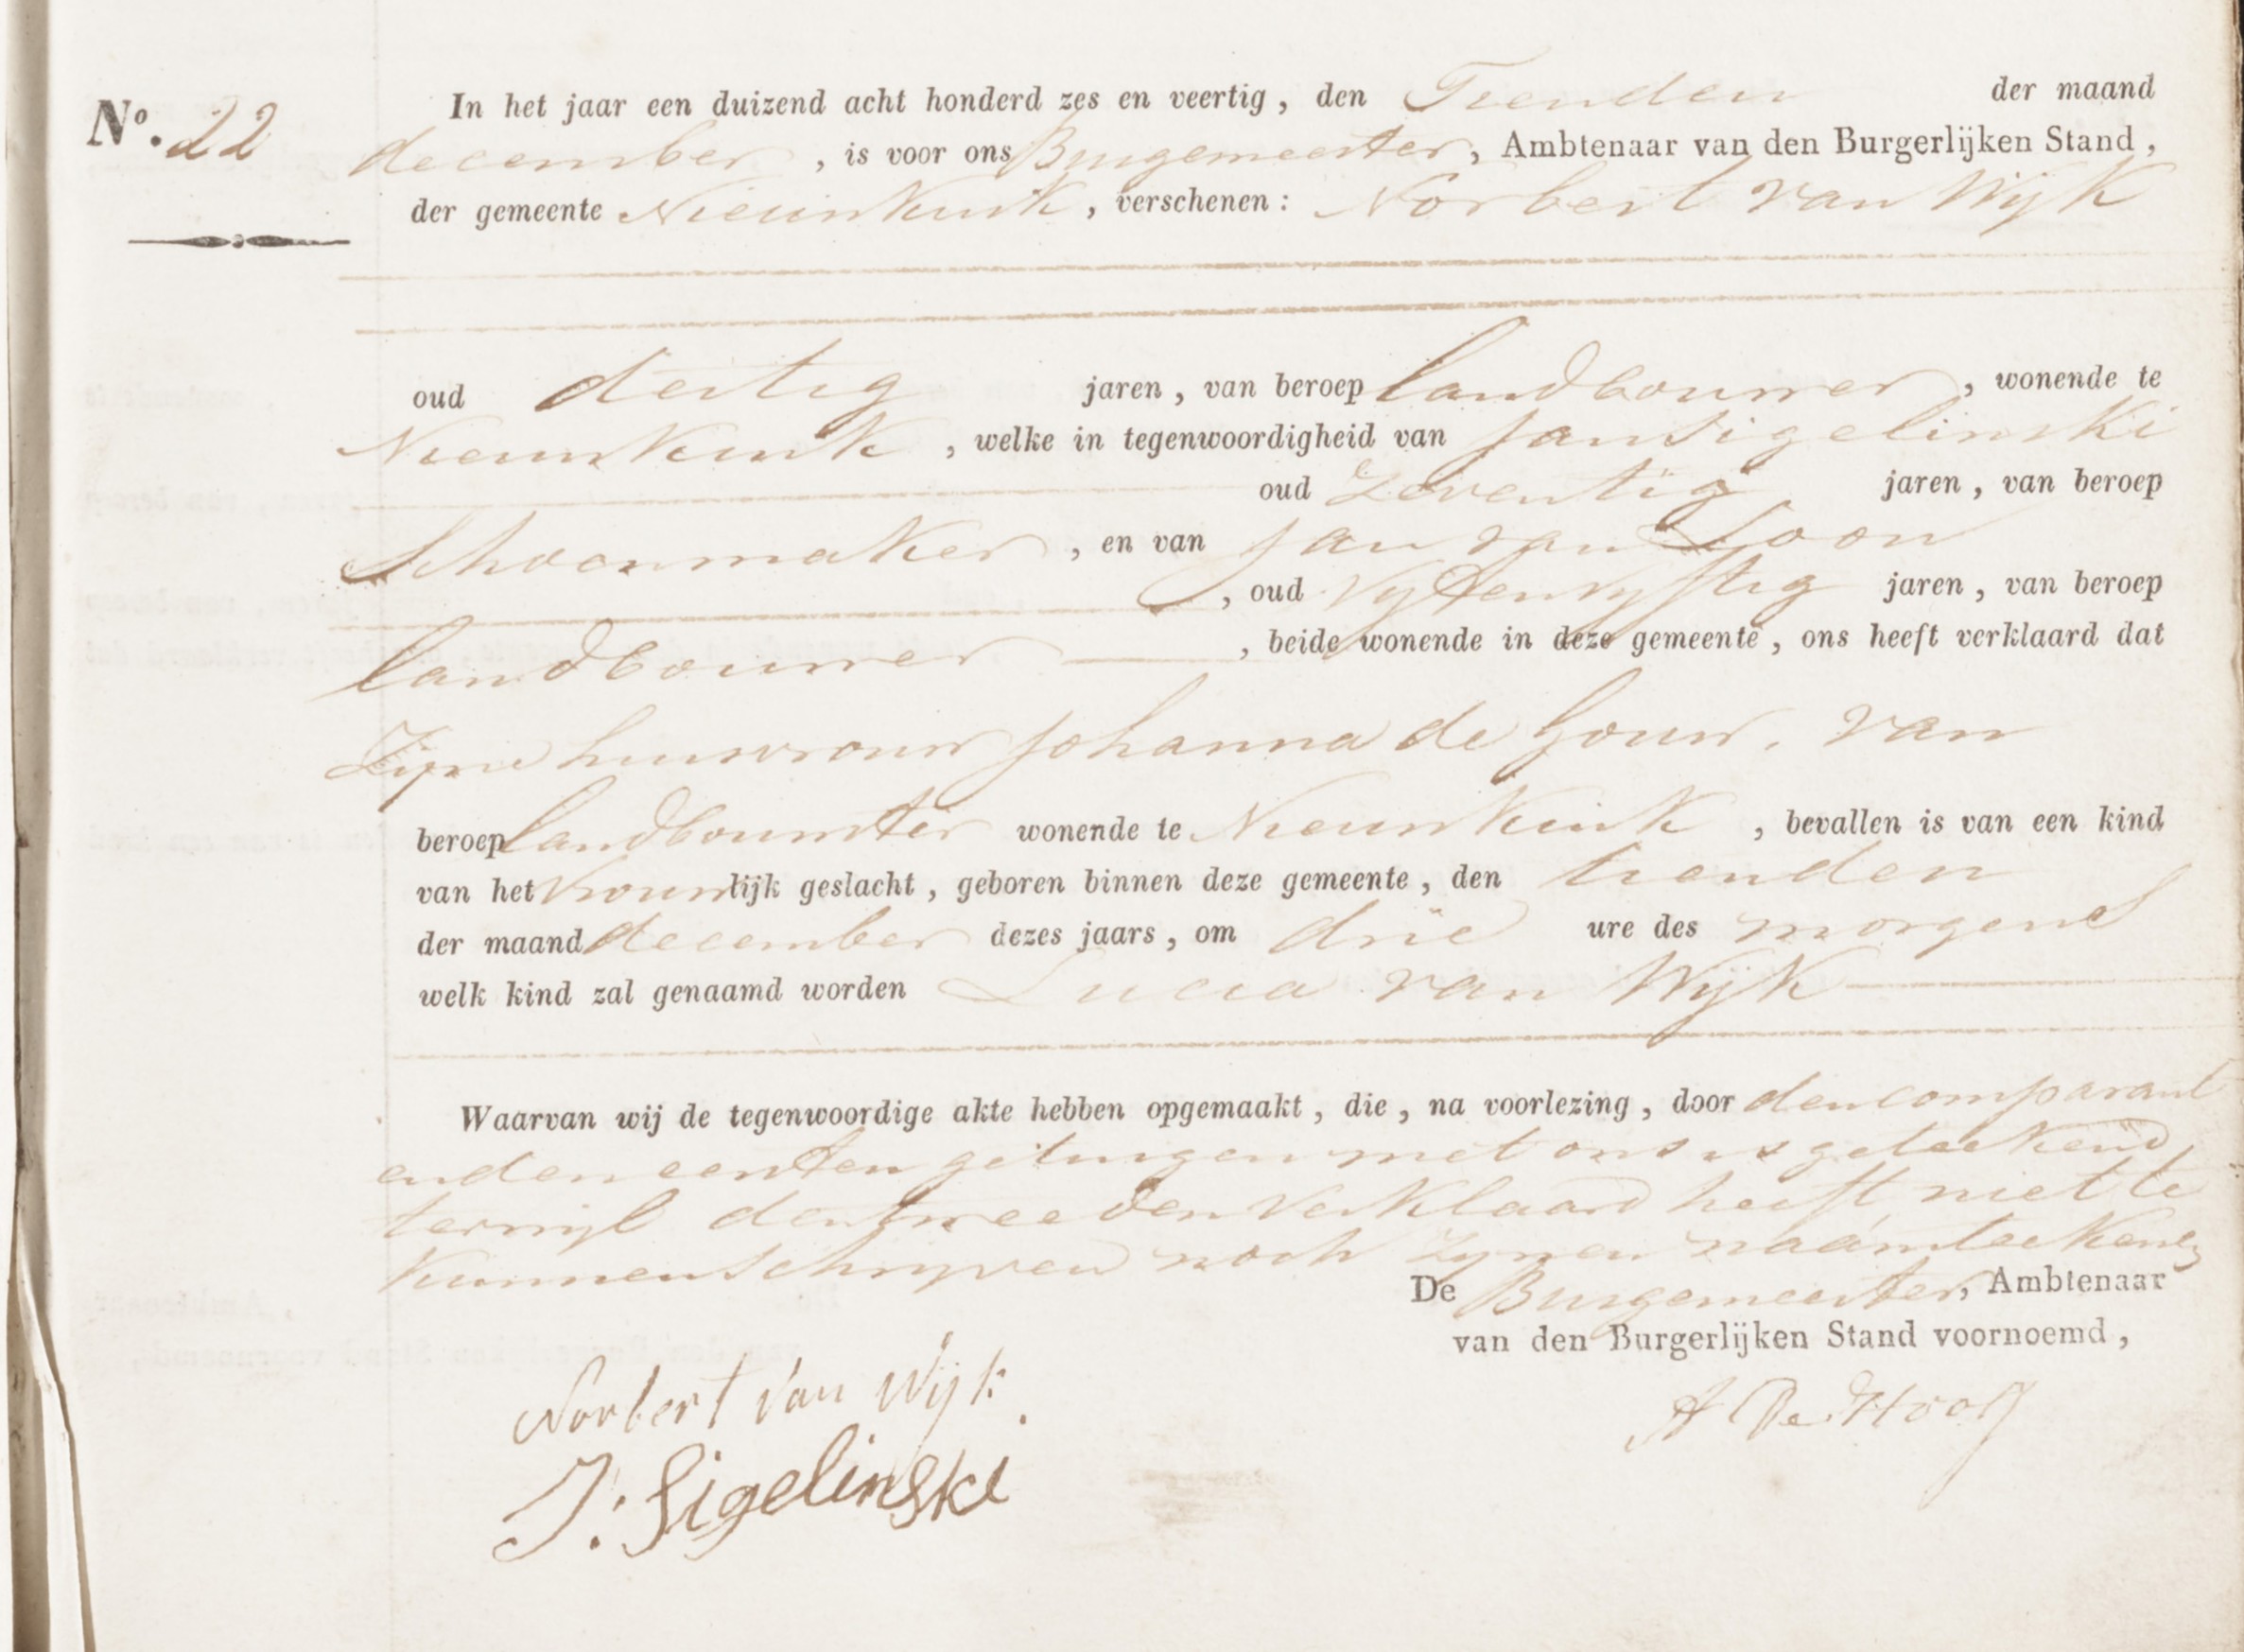 No. 22
In het jaar een duizend acht honderd zes en veertig, den Tienden der maand
december, is voor ons Burgemeester, Ambtenaar van den Burgerlijken Stand,
der gemeente Nieuwkuik, verschenen: Norbert van Wijk
oud dertig jaren, van beroep landbouwer, wonende te
Nieuwkuik, welke in tegenwoordigheid van Jan Sigelinski
oud Zeventig jaren, van beroep
Schoenmaker, en van Jan van Loon
, oud Vyfenvyftig jaren, van beroep
landbouwer, beide wonende in deze gemeente, ons heeft verklaard dat
Zijne huisvrouw Johanna de Gouw, van
beroep landbouwster wonende te Nieuwkuik, bevallen is van een kind
van het Vrouwlijk geslacht, geboren binnen deze gemeente, den tienden
der maand december dezes jaars, om drie ure des morgens
welk kind zal genaamd worden Lucia van Wijk
Waarvan wij de tegenwoordige akte hebben opgemaakt, die, na voorlezing, door den comparant
en den eersten getuigen met ons is geteekend,
terwijl den tweeden verklaard heeft niet te
kunnen schryven noch zynen naam teekenen
De Burgemeester, Ambtenaar
van den Burgerlijken Stand voornoemd,
Norbert van Wijk
J: Sigelinski
A De